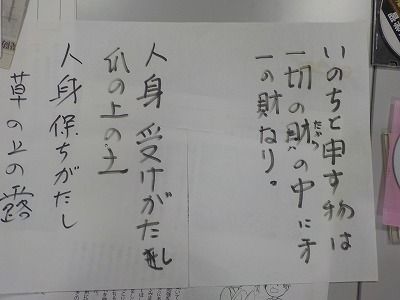 いのちと申す物は
一切の財の中に才
一の財なり。
人身受けがたし
爪の上の土
人身保ちがたし
草の上の露